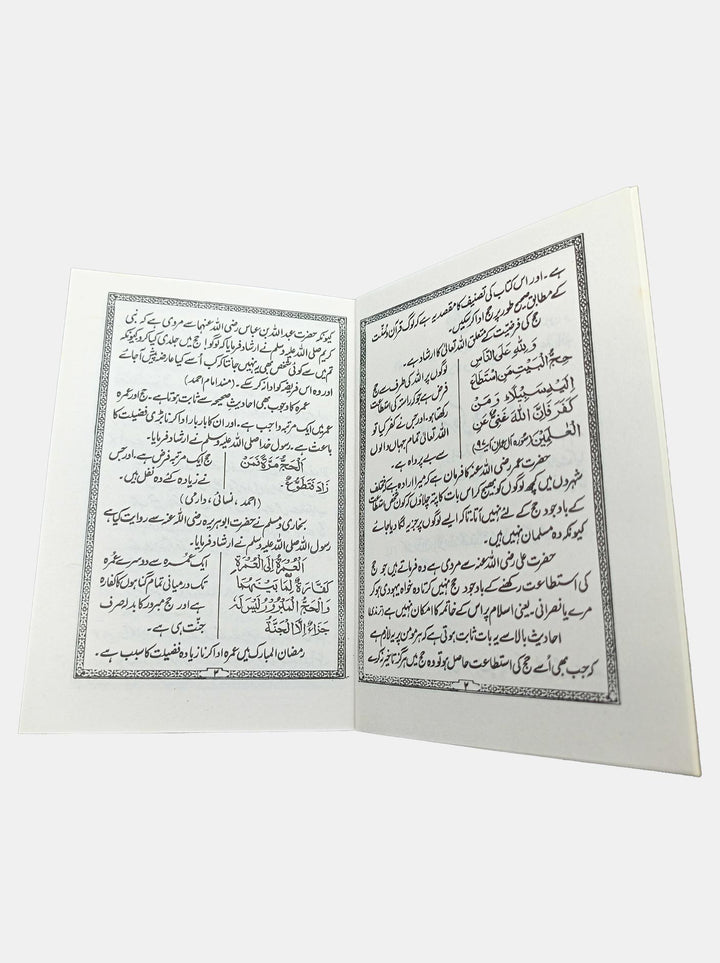 ہے۔ اور اس کتاب کی تصنیف کا مقصد یہ ہے کہ لوگ قرآن و سنت
کے مطابق صحیح طور پر حج ادا کر سکیں۔
حج کی فرضیت کے متعلق اللہ تعالیٰ کا ارشاد ہے۔
وَلِلّٰهِ عَلَى النَّاسِ
حِجُّ الْبَيْتِ مَنِ اسْتَطَاعَ
اِلَيْهِ سَبِيْلًا وَمَنْ
كَفَرَ فَاِنَّ اللّٰهَ غَنِيٌّ عَنِ
الْعٰلَمِيْنَ (سورہ آل عمران ۹۷)
لوگوں پر اللہ کی طرف سے حج
فرض ہے جو کہ راستہ کی استطاعت
رکھتا ہو۔ اور جس نے کفر کیا تو
اللہ تعالیٰ تمام جہاں والوں
سے بے پرواہ ہے۔
حضرت عمر رضی اللہ عنہ کا فرمان ہے کہ میرا ارادہ ہے کہ مختلف
شہروں میں کچھ لوگوں کو بھیج کر اس بات کا پتہ چلاؤں کہ کون شخص استطاعت
کے باوجود حج کے لئے نہیں آتا تاکہ ایسے لوگوں پر جزیہ لگا دیا جائے
کیونکہ وہ مسلمان نہیں ہیں۔
حضرت علی رضی اللہ عنہ سے مروی ہے وہ فرماتے ہیں جو حج
کی استطاعت رکھنے کے باوجود حج نہیں کرتا وہ خواہ یہودی ہو کر
مرے یا نصرانی۔ یعنی اسلام پر اس کے خاتمہ کا امکان نہیں ہے (ترمذی)
احادیث بالا سے یہ بات ثابت ہوتی ہے کہ ہر مومن پر یہ لازم ہے
کہ جب بھی اُسے حج کی استطاعت حاصل ہو تو وہ حج میں ہرگز تاخیر نہ کرے
۲
کیونکہ حضرت عبداللہ بن عباس رضی اللہ عنہما سے مروی ہے کہ نبی
کریم صلی اللہ علیہ وسلم نے ارشاد فرمایا کہ لوگو! حج میں جلدی کیا کرو کیونکہ
تم میں سے کوئی شخص بھی یہ نہیں جانتا کہ کب اُسے کیا عارضہ پیش آ جائے
اور وہ اس فریضہ کو ادا نہ کر سکے۔ (مسند امام احمد)
عمرہ کا وجوب بھی احادیث صحیحہ سے ثابت ہوتا ہے۔ حج اور عمرہ
عمر میں ایک مرتبہ واجب ہے۔ اور ان کا بار بار ادا کرنا بڑی فضیلت کا
باعث ہے۔ رسول خدا صلی اللہ علیہ وسلم نے ارشاد فرمایا۔
اَلْحَجُّ مَرَّةً فَمَنْ
زَادَ فَتَطَوُّعٌ۔
حج ایک مرتبہ فرض ہے۔ اور جس
نے زیادہ کئے وہ نفل ہیں۔
(احمد، نسائی، دارمی)
بخاری و مسلم نے حضرت ابو ہریرہ رضی اللہ عنہ سے روایت کیا ہے
رسول اللہ صلی اللہ علیہ وسلم نے ارشاد فرمایا۔
اَلْعُمْرَةُ اِلَى الْعُمْرَةِ
كَفَّارَةٌ لِّمَا بَيْنَهُمَا
وَالْحَجُّ الْمَبْرُوْرُ لَيْسَ لَهٗ
جَزَاءٌ اِلَّا الْجَنَّةُ
ایک عمرہ سے دوسرے عمرہ
تک درمیانی تمام گناہوں کا کفارہ
ہے اور حج مبرور کا بدلہ صرف
جنّت ہی ہے۔
رمضان المبارک میں عمرہ ادا کرنا زیادہ فضیلت کا سبب ہے۔
۳